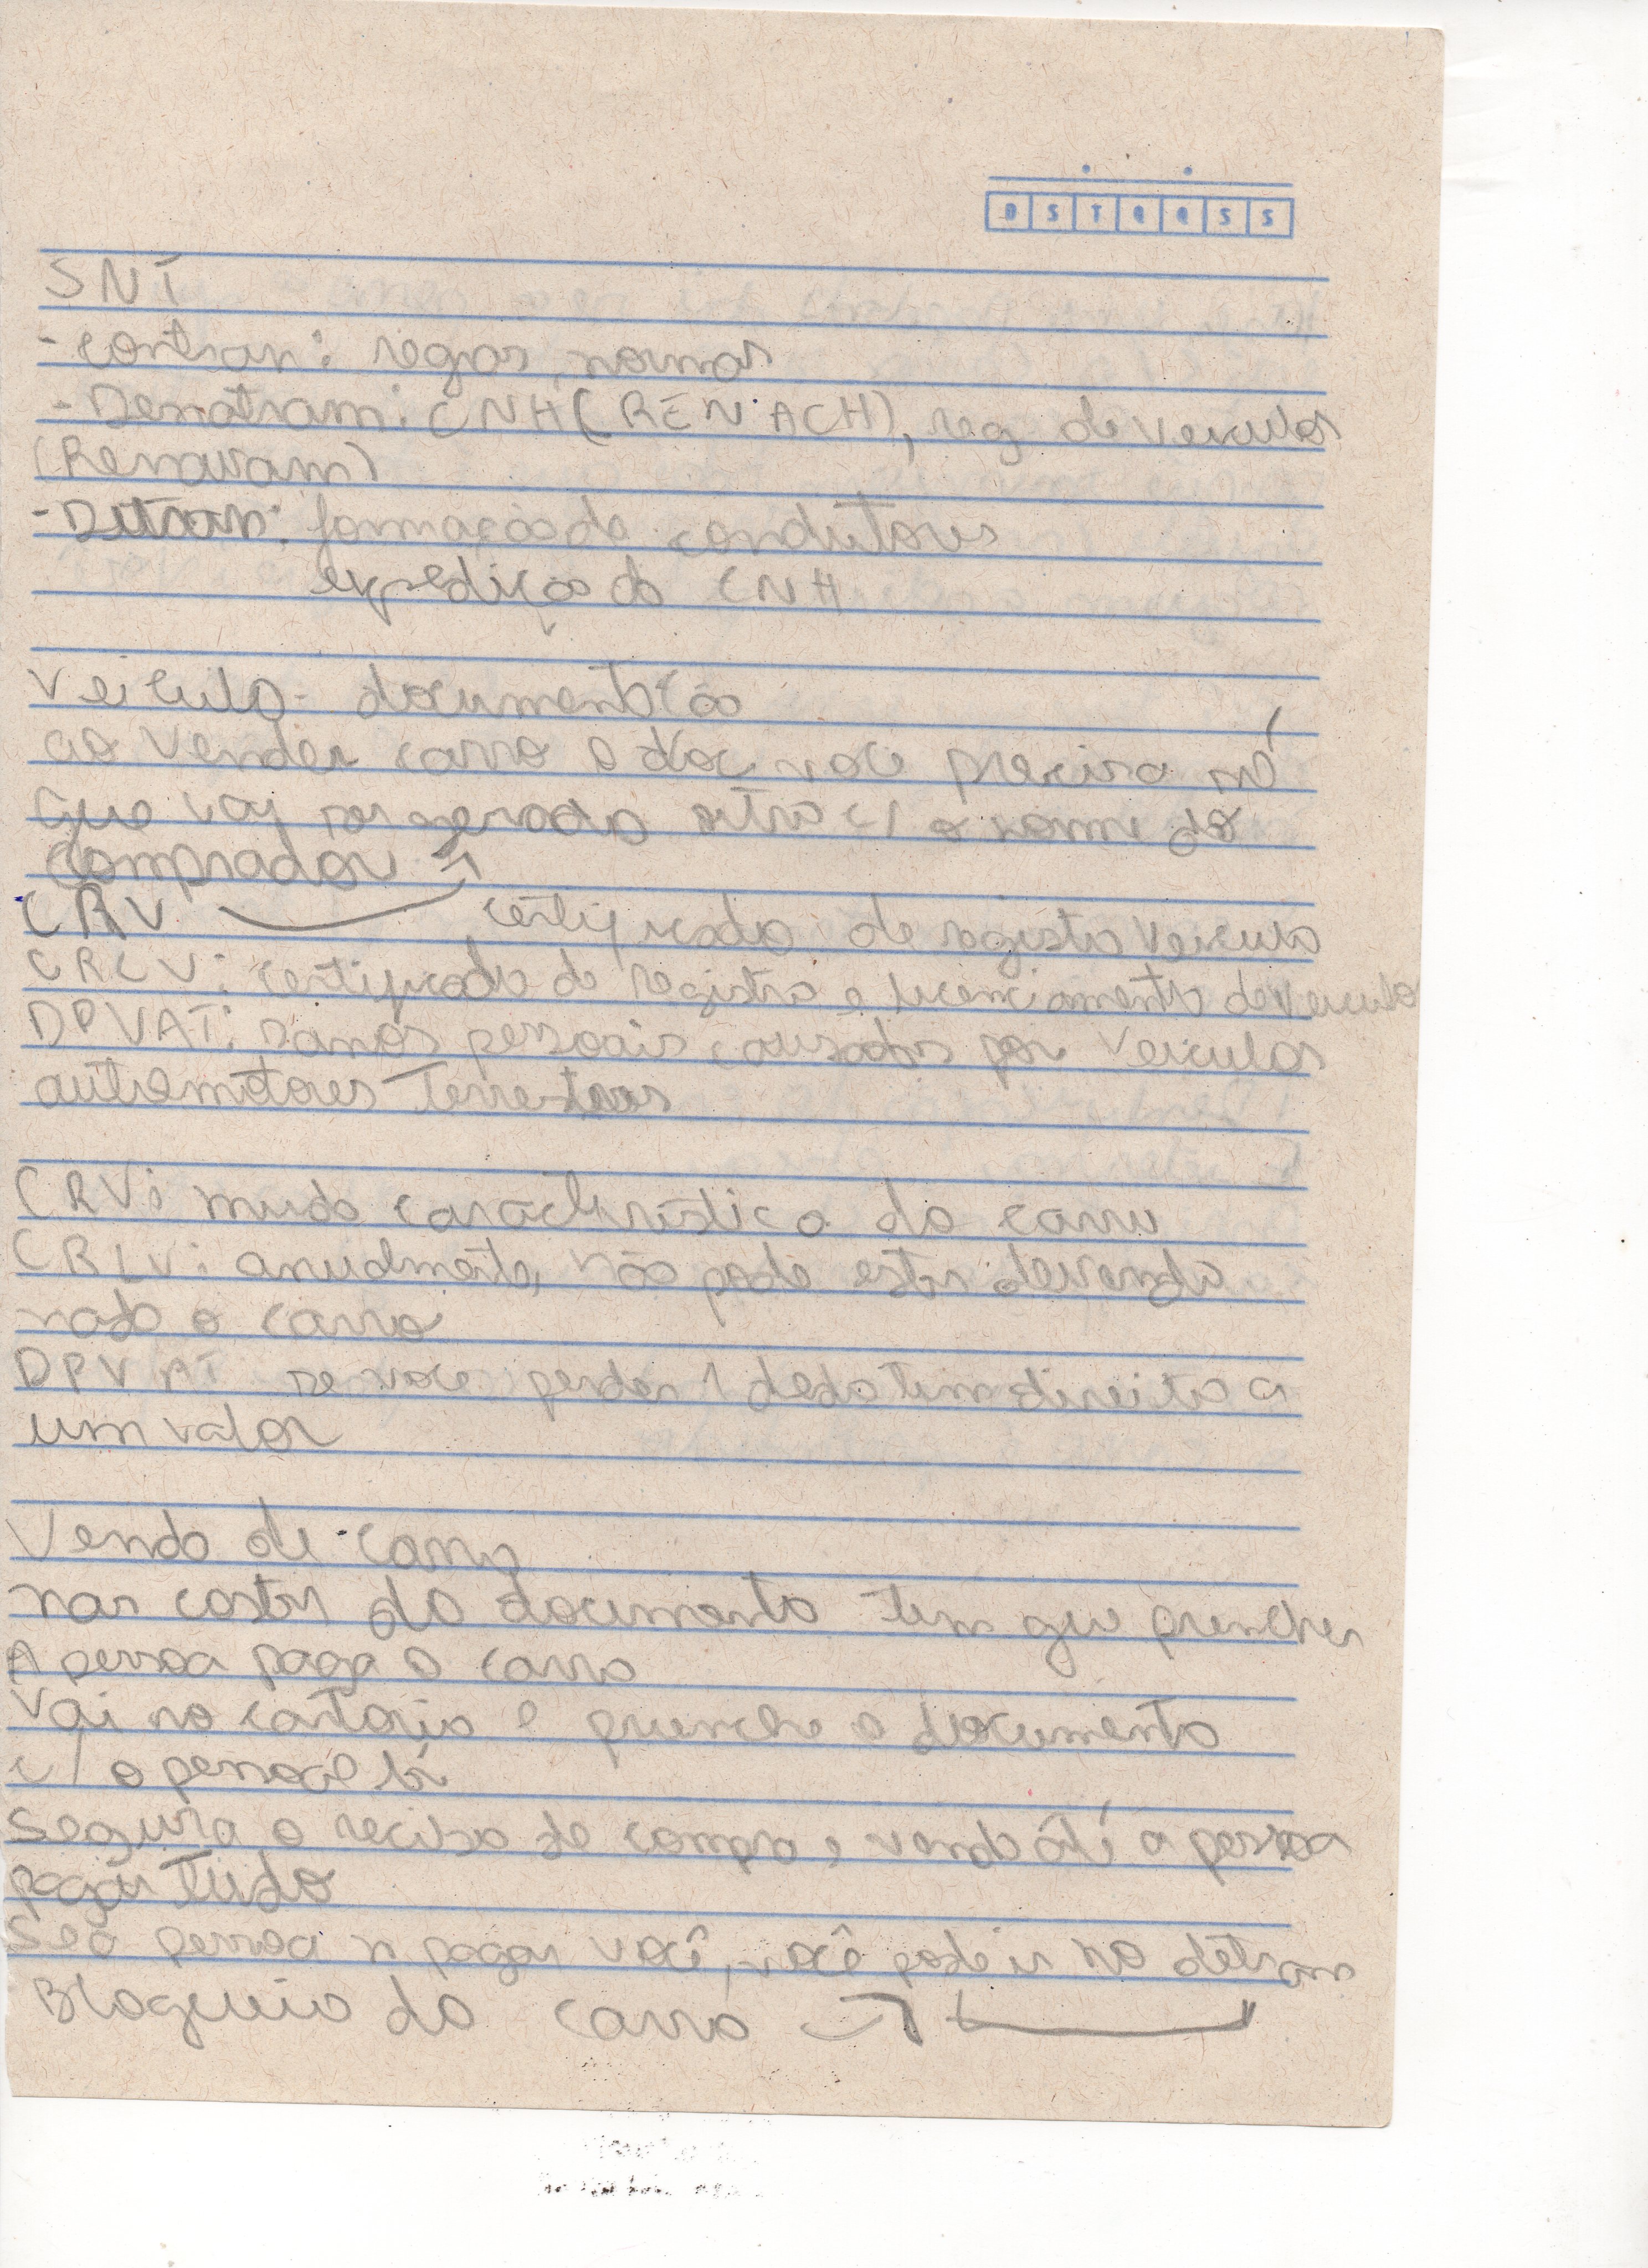 D S T Q Q S S
SNT
- contran: regras, normas
- Denatram: CNH (RENACH), reg de veiculos
(Renavam)
- Detran: formação de condutores
expedição da CNH
Veiculo - documentção
ao vender carro o doc voce precisa
que vai ser gerado outro c/ o nome do
Comprador
CRV certificado de registro veiculo
CRLV: certificado de registro e licenciamento de veiculo
DPVAT: Danos pessoais causados por veiculos
autremotores Terrestres
CRV: muda caracteristica do carru
CRLV: anualmente, não pode estar
rado o carro
DPVAT se voce perder 1 dedo tem direito a
um valor
Venda de carro
nas costas do documento tem que prencher
A pessoa paga o carro
Vai no cartorio e preenche o documento
c/ o pessoal lá
Segura o recibo de compra e venda até a pessoa
pagar tudo
Se a pessoa n pagar você, você pode ir no detran
Bloqueio do carro